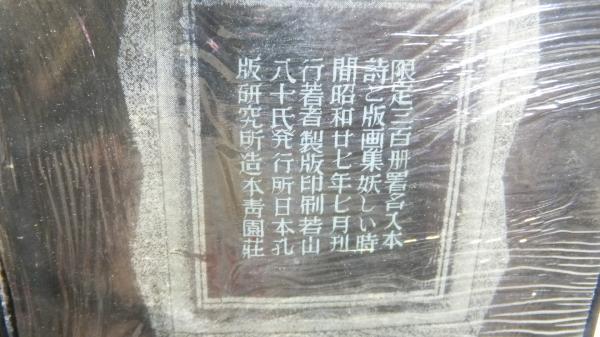 限定三百册署名入本
詩と版画集妖しい時
間昭和廿七年七月刊
行著者製版印刷若山
八十氏発行所日本孔
版研究所造本青園荘